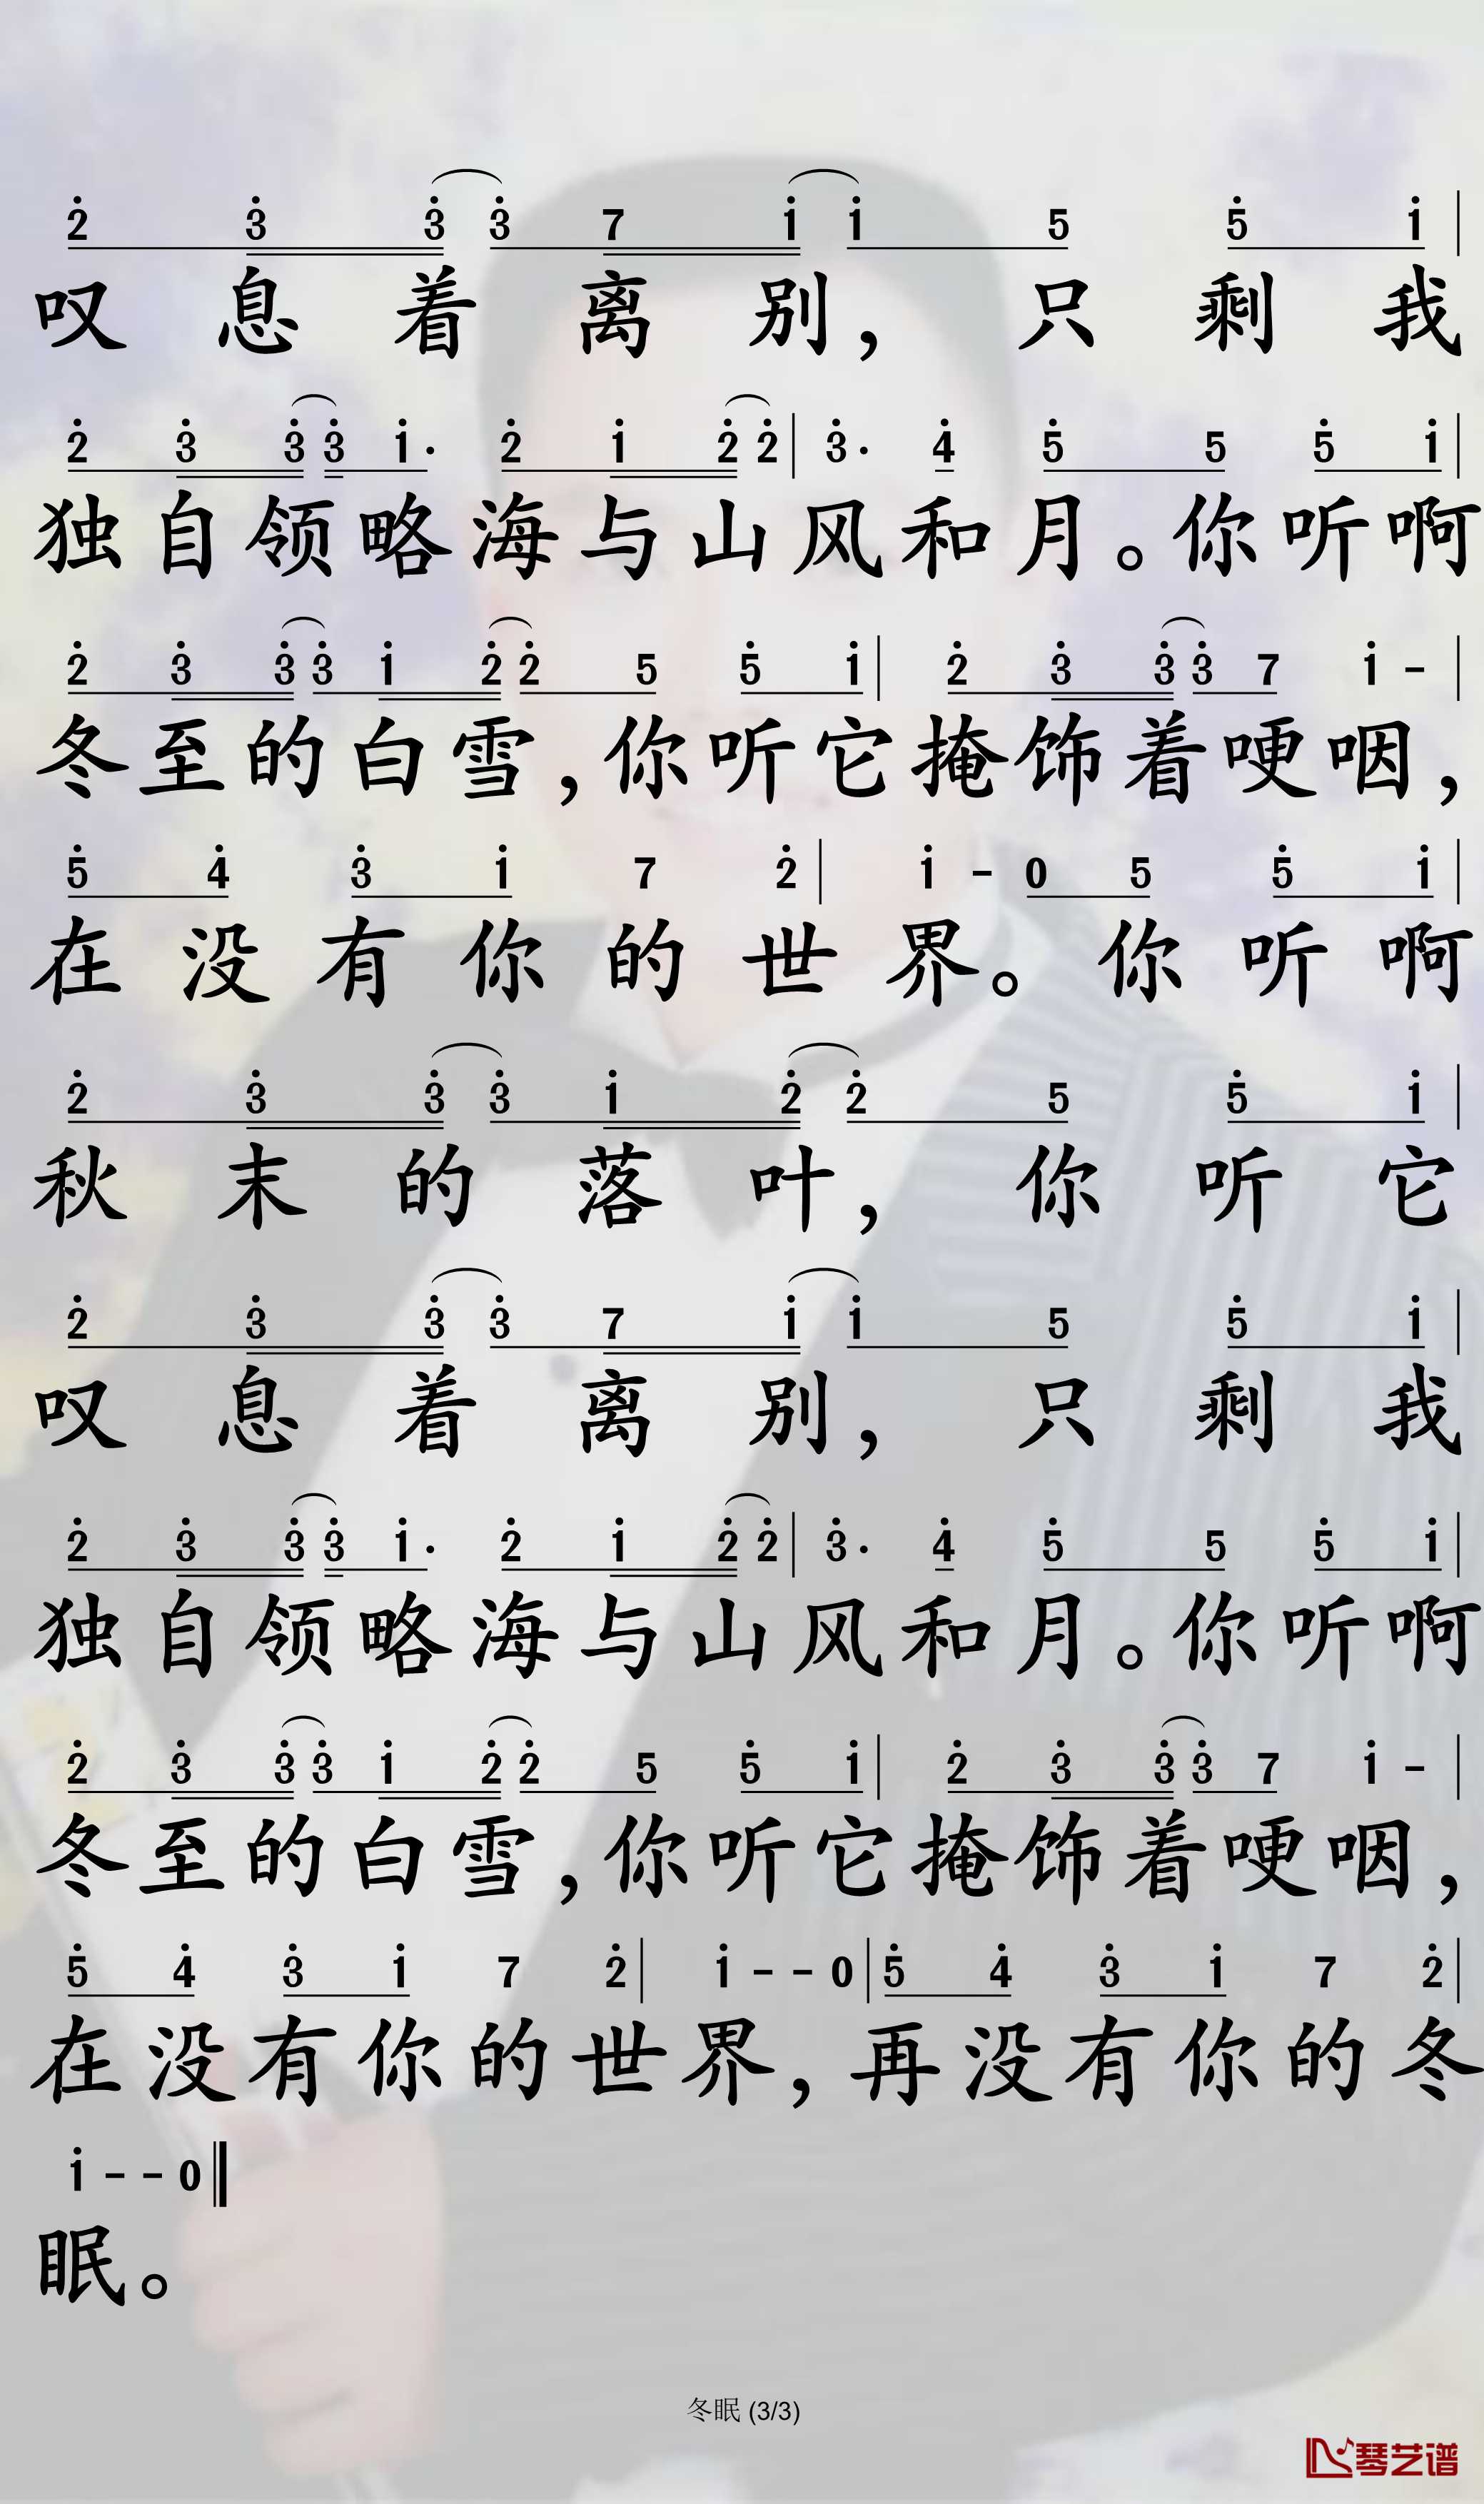 2̇ 3̇ 3̇ 3̇ 7 1̇ 1̇ 5 5̇ 1̇ |
叹息着离别，只剩我
2̇ 3̇ 3̇ 3̇ 1̇· 2̇ 1̇ 2̇ 2̇ | 3̇· 4̇ 5̇ 5 5̇ 1̇ |
独自领略海与山风和月。你听啊
2̇ 3̇ 3̇ 3̇ 1̇ 2̇ 2̇ 5 5̇ 1̇ | 2̇ 3̇ 3̇ 3̇ 7 1̇ - |
冬至的白雪，你听它掩饰着哽咽，
5̇ 4̇ 3̇ 1̇ 7 2̇ | 1̇ - 0 5 5̇ 1̇ |
在没有你的世界。你听啊
2̇ 3̇ 3̇ 3̇ 1̇ 2̇ 2̇ 5 5̇ 1̇ |
秋末的落叶，你听它
2̇ 3̇ 3̇ 3̇ 7 1̇ 1̇ 5 5̇ 1̇ |
叹息着离别，只剩我
2̇ 3̇ 3̇ 3̇ 1̇· 2̇ 1̇ 2̇ 2̇ | 3̇· 4̇ 5̇ 5 5̇ 1̇ |
独自领略海与山风和月。你听啊
2̇ 3̇ 3̇ 3̇ 1̇ 2̇ 2̇ 5 5̇ 1̇ | 2̇ 3̇ 3̇ 3̇ 7 1̇ - |
冬至的白雪，你听它掩饰着哽咽，
5̇ 4̇ 3̇ 1̇ 7 2̇ | 1̇ - - 0 | 5̇ 4̇ 3̇ 1̇ 7 2̇ |
在没有你的世界，再没有你的冬
1̇ - - 0 ‖
眠。
冬眠 (3/3)
琴艺谱